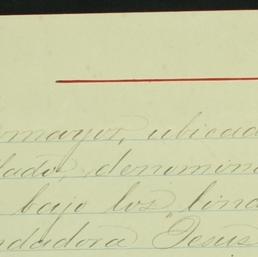 mayor, ubicad
lado, denomin
bajo los lind
ndadora "Jesus